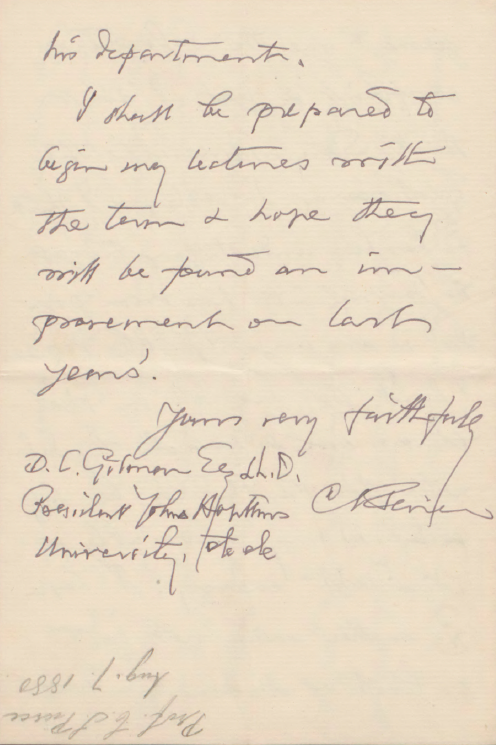 his department.
I shall be prepared to
begin my lectures with
the term & hope they
will be found an im-
provement on last
years'.
Yours very faithfully
C S Peirce
D. C. Gilman Esq LL.D.
President Johns Hopkins
University, etc etc
Prof. C S Peirce
Aug. 7. 1880